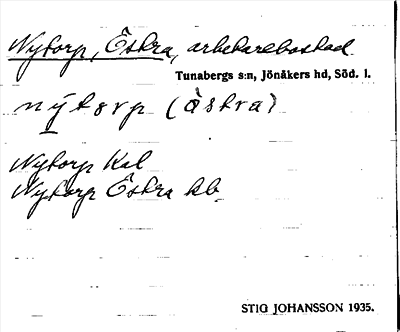 Nytorp, Östra, arbetarebostad
Tunabergs s:n, Jönåkers hd, Söd. l.
nỳtorp (òstra)
Nytorp Kal
Nytorp Östra kb
STIG JOHANSSON 1935.